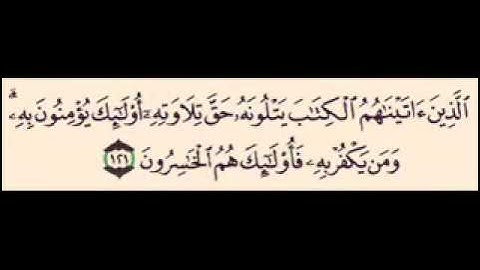 الَّذِينَ ءَاتَيْنَٰهُمُ الْكِتَٰبَ يَتْلُونَهُۥ حَقَّ تِلَاوَتِهِۦٓ أُوْلَٰٓئِكَ يُؤْمِنُونَ بِهِۦ ۗ
وَمَن يَكْفُرْ بِهِۦ فَأُوْلَٰٓئِكَ هُمُ ٱلْخَٰسِرُونَ ١٢١